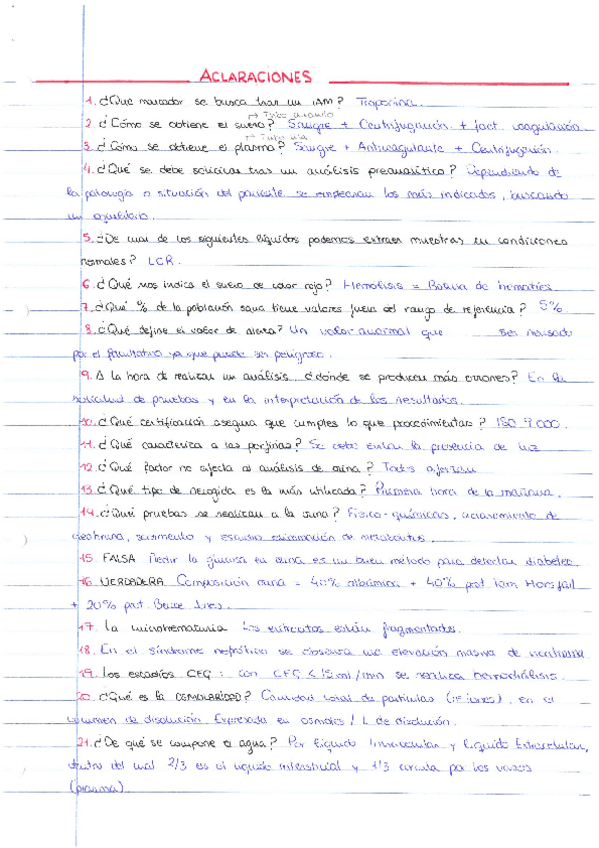 ACLARACIONES
1. ¿Qué marcador se busca tras un IAM? Troponina.
→ Tubo amarillo
2. ¿Cómo se obtiene el suero? Sangre + Centrifugación + fact. coagulación
→ Tubo lila
3. ¿Cómo se obtiene el plasma? Sangre + Anticoagulante + Centrifugación.
4. ¿Qué se debe solicitar tras un análisis preanalítico? Dependiendo de
la patología o situación del paciente se emplearan los más indicados, buscando
un equilibrio.
5. ¿De cual de los siguientes líquidos podemos extraer muestras en condiciones
normales? LCR.
6. ¿Qué nos indica el suero de color rojo? Hemólisis = Rotura de hematíes.
7. ¿Qué % de la población sana tiene valores fuera del rango de referencia? 5%.
8. ¿Qué define el valor de alerta? Un valor anormal que ser revisado
por el facultativo ya que puede ser peligroso.
9. A la hora de realizar un análisis ¿dónde se producen más errores? En la
solicitud de pruebas y en la interpretación de los resultados.
10. ¿Qué certificación asegura que cumples lo que procedimientas? ISO 9.000
11. ¿Qué caracteriza a las porfirias? Se debe evitar la presencia de luz
12. ¿Qué factor no afecta al análisis de orina? Todos afectan
13. ¿Qué tipo de recogida es la más utilizada? Primera hora de la mañana.
14. ¿Qué pruebas se realizan a la orina? Físico-químicas, aclaramiento de
creatinina, sedimento y estudio eliminación de metabolitos.
15. FALSA Medir la glucosa en orina es un buen método para detectar diabetes.
16. VERDADERA Composición orina = 40% albúmina + 40% prot. Tam Horsfall
+ 20% prot. Bence Jones.
17. La microhematuria los eritrocitos están fragmentados.
18. En el síndrome nefrótico se observa una elevación masiva de
19. Los estadíos CFG: con CFG < 15 ml/min se realiza hemodiálisis.
20. ¿Qué es la OSMOLARIDAD? Cantidad total de partículas en el
volumen de disolución. Expresada en osmoles / L de disolución.
21. ¿De qué se compone el agua? Por líquido Intravascular y líquido Extracelular,
dentro del cual 2/3 es el líquido intersticial y 1/3 circula por los vasos
(plasma)